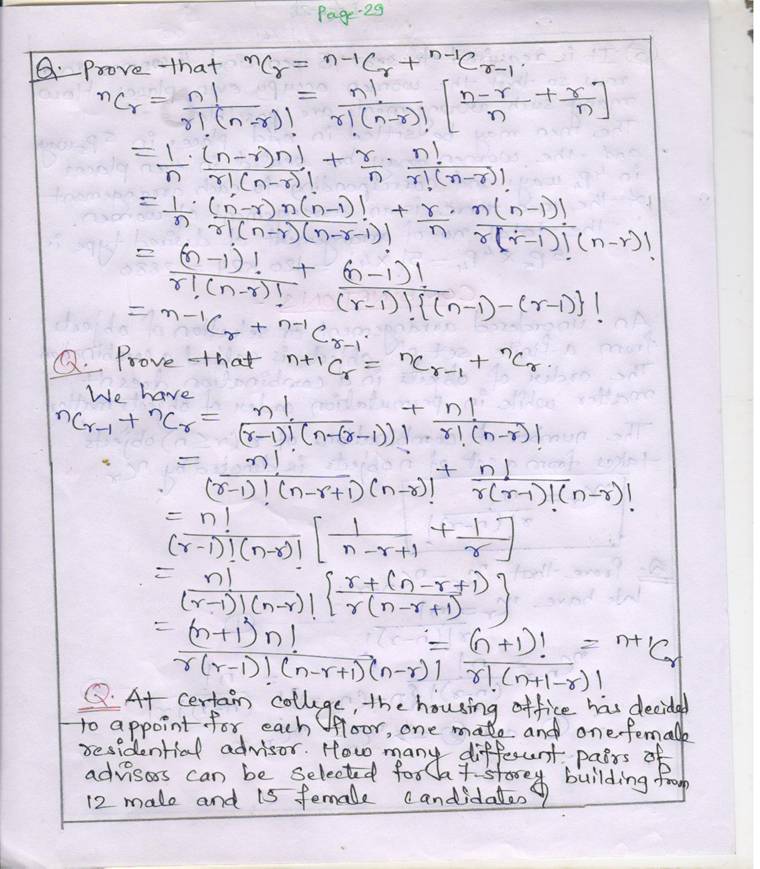 Page-29
Q. Prove that ⁿCᵣ = ⁿ⁻¹Cᵣ + ⁿ⁻¹Cᵣ₋₁
ⁿCᵣ = n!/(r!(n-r)!) = n!/(r!(n-r)!) [(n-r)/n + r/n]
= 1/n · (n-r)n!/(r!(n-r)!) + r/n n!/(r!(n-r)!)
= 1/n · (n-r)n(n-1)!/(r!(n-r)(n-r-1)!) + r/n · n(n-1)!/(r(r-1)!(n-r)!
= (n-1)!/(r!(n-r)! + (n-1)!/((r-1)!{(n-1)-(r-1)}!
= ⁿ⁻¹Cᵣ + ⁿ⁻¹Cᵣ₋₁.
Q. Prove that ⁿ⁺¹Cᵣ = ⁿCᵣ₋₁ + ⁿCᵣ
We have
ⁿCᵣ₋₁ + ⁿCᵣ = n!/((r-1)!(n-(r-1))! + n!/(r!(n-r)!
= n!/((r-1)!(n-r+1)(n-r)! + n!/(r(r-1)!(n-r)!
= n!/((r-1)!(n-r)! [1/(n-r+1) + 1/r]
= n!/((r-1)!(n-r)! {r+(n-r+1)/r(n-r+1)}
= (n+1)n!/(r(r-1)!(n-r+1)(n-r)! = (n+1)!/(r!(n+1-r)! = ⁿ⁺¹Cᵣ
Q. At certain college, the housing office has decided
to appoint for each floor, one male and one female
residential advisor. How many different pairs of
advisors can be selected for a 7-storey building from
12 male and 15 female candidates?